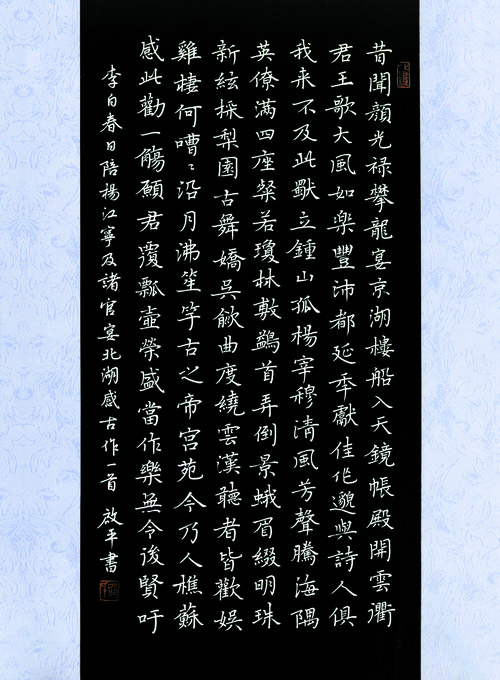 昔聞顏光禄攀龍宴京湖樓船入天鏡帳殿開雲衢
君王歌大風如樂豐沛都延年獻佳作邈與詩人俱
我来不及此獸立鍾山孤楊宰穆清風芳聲騰海隅
英僚满四座粲若瓊林敷鷁首弄倒景蛾眉綴明珠
新絃採梨園古舞嬌吳歈曲度繞雲漢聽者皆歡娱
雞棲何嘈〻沿月沸笙竽古之帝宫苑今乃人樵蘇
感此勸一觴願君覆瓢壺榮盛當作樂無令後賢吁
李白春日陪楊江寧及諸官宴北湖感古作一首 啟平書